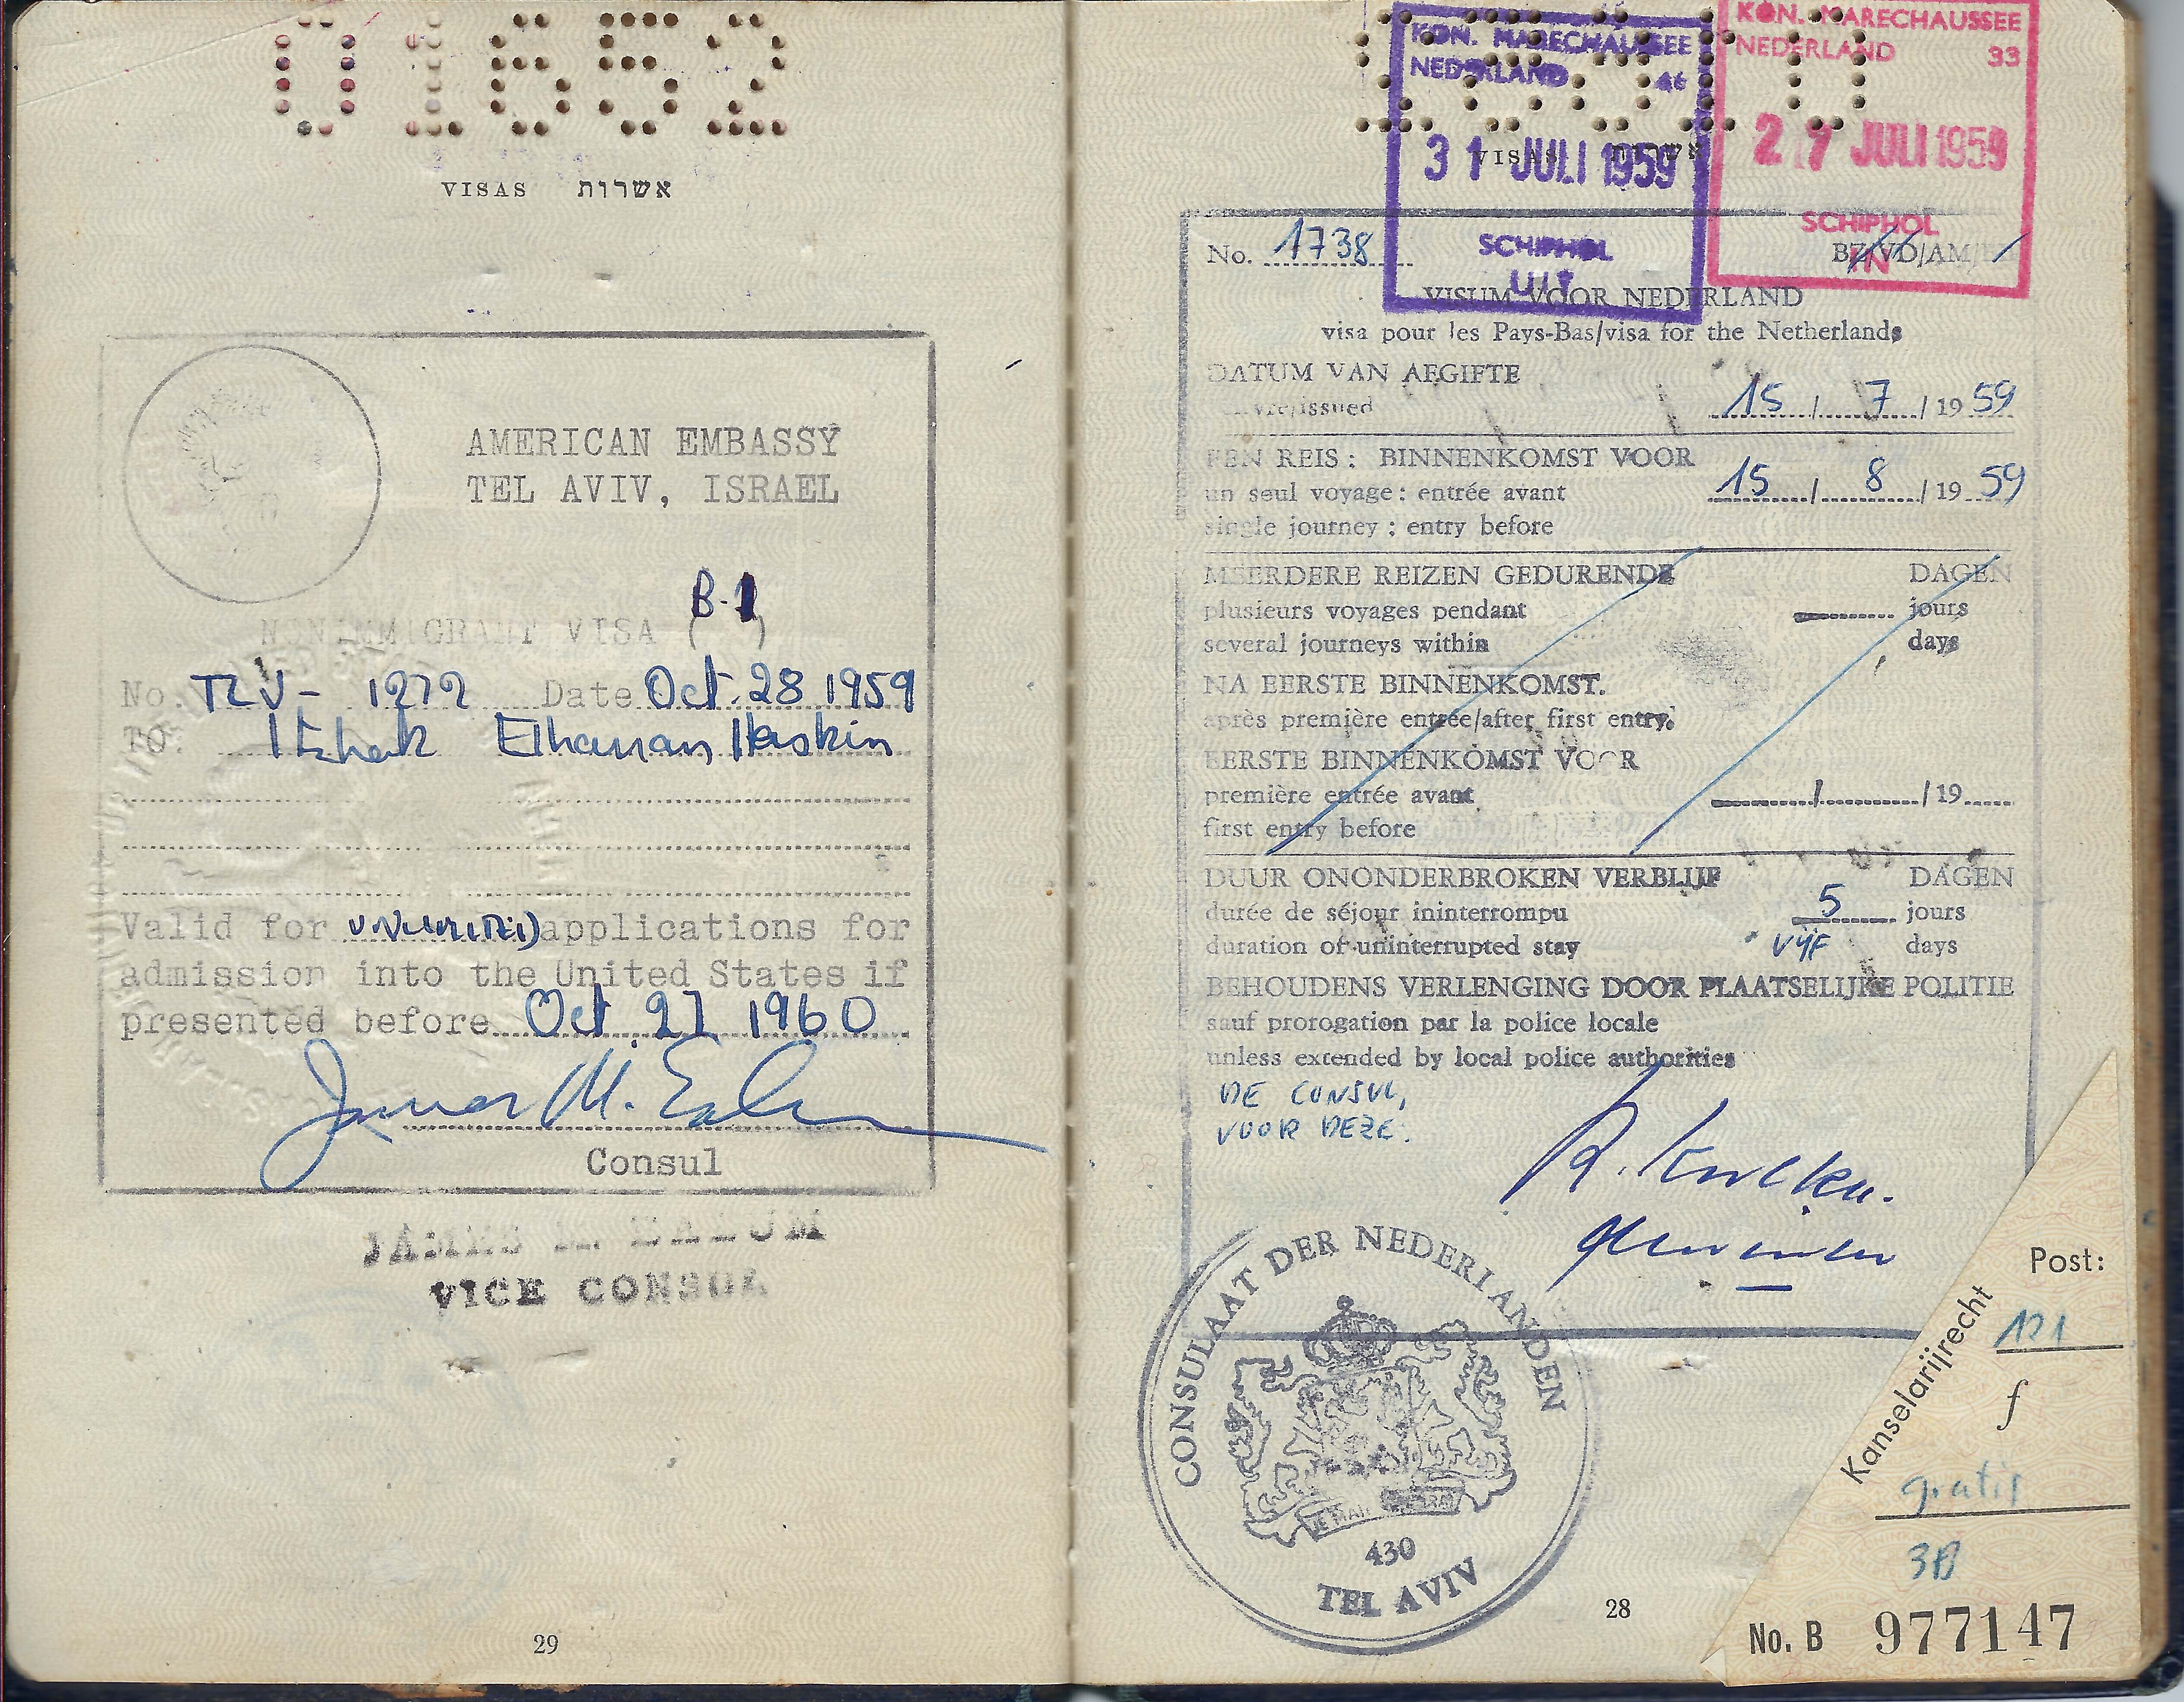 01652
VISAS אשרות
AMERICAN EMBASSY
TEL AVIV, ISRAEL
NONIMMIGRANT VISA (B-1)
No. TLV- 1272 Date Oct. 28 1959
TO: Itzhak Elhanan Haskin
Valid for applications for
admission into the United States if
presented before Oct. 27 1960
Consul
VICE CONSUL
29
KON. MARECHAUSSEE
NEDERLAND 46
31 JULI 1959
SCHIPHOL
UIT
KON. MARECHAUSSEE
NEDERLAND 33
27 JULI 1959
SCHIPHOL
IN
VISAS אשרות
No. 1738 BZ/VD/AM/
VISUM VOOR NEDERLAND
visa pour les Pays-Bas/visa for the Netherlands
DATUM VAN AFGIFTE
issued 15 / 7 / 19 59
EEN REIS: BINNENKOMST VOOR
un seul voyage: entrée avant 15 / 8 / 19 59
single journey: entry before
MEERDERE REIZEN GEDURENDE DAGEN
plusieurs voyages pendant jours
several journeys within days
NA EERSTE BINNENKOMST.
après première entrée/after first entry.
EERSTE BINNENKOMST VOOR
première entrée avant / / 19
first entry before
DUUR ONONDERBROKEN VERBLIJF DAGEN
durée de séjour ininterrompu 5 jours
duration of uninterrupted stay VIJF days
BEHOUDENS VERLENGING DOOR PLAATSELIJKE POLITIE
sauf prorogation par la police locale
unless extended by local police authorities
DE CONSUL,
VOOR DEZE:
CONSULAAT DER NEDERLANDEN
430
TEL AVIV
28
Post:
121
Kanselarijrecht
f
gratis
3B
No. B 977147